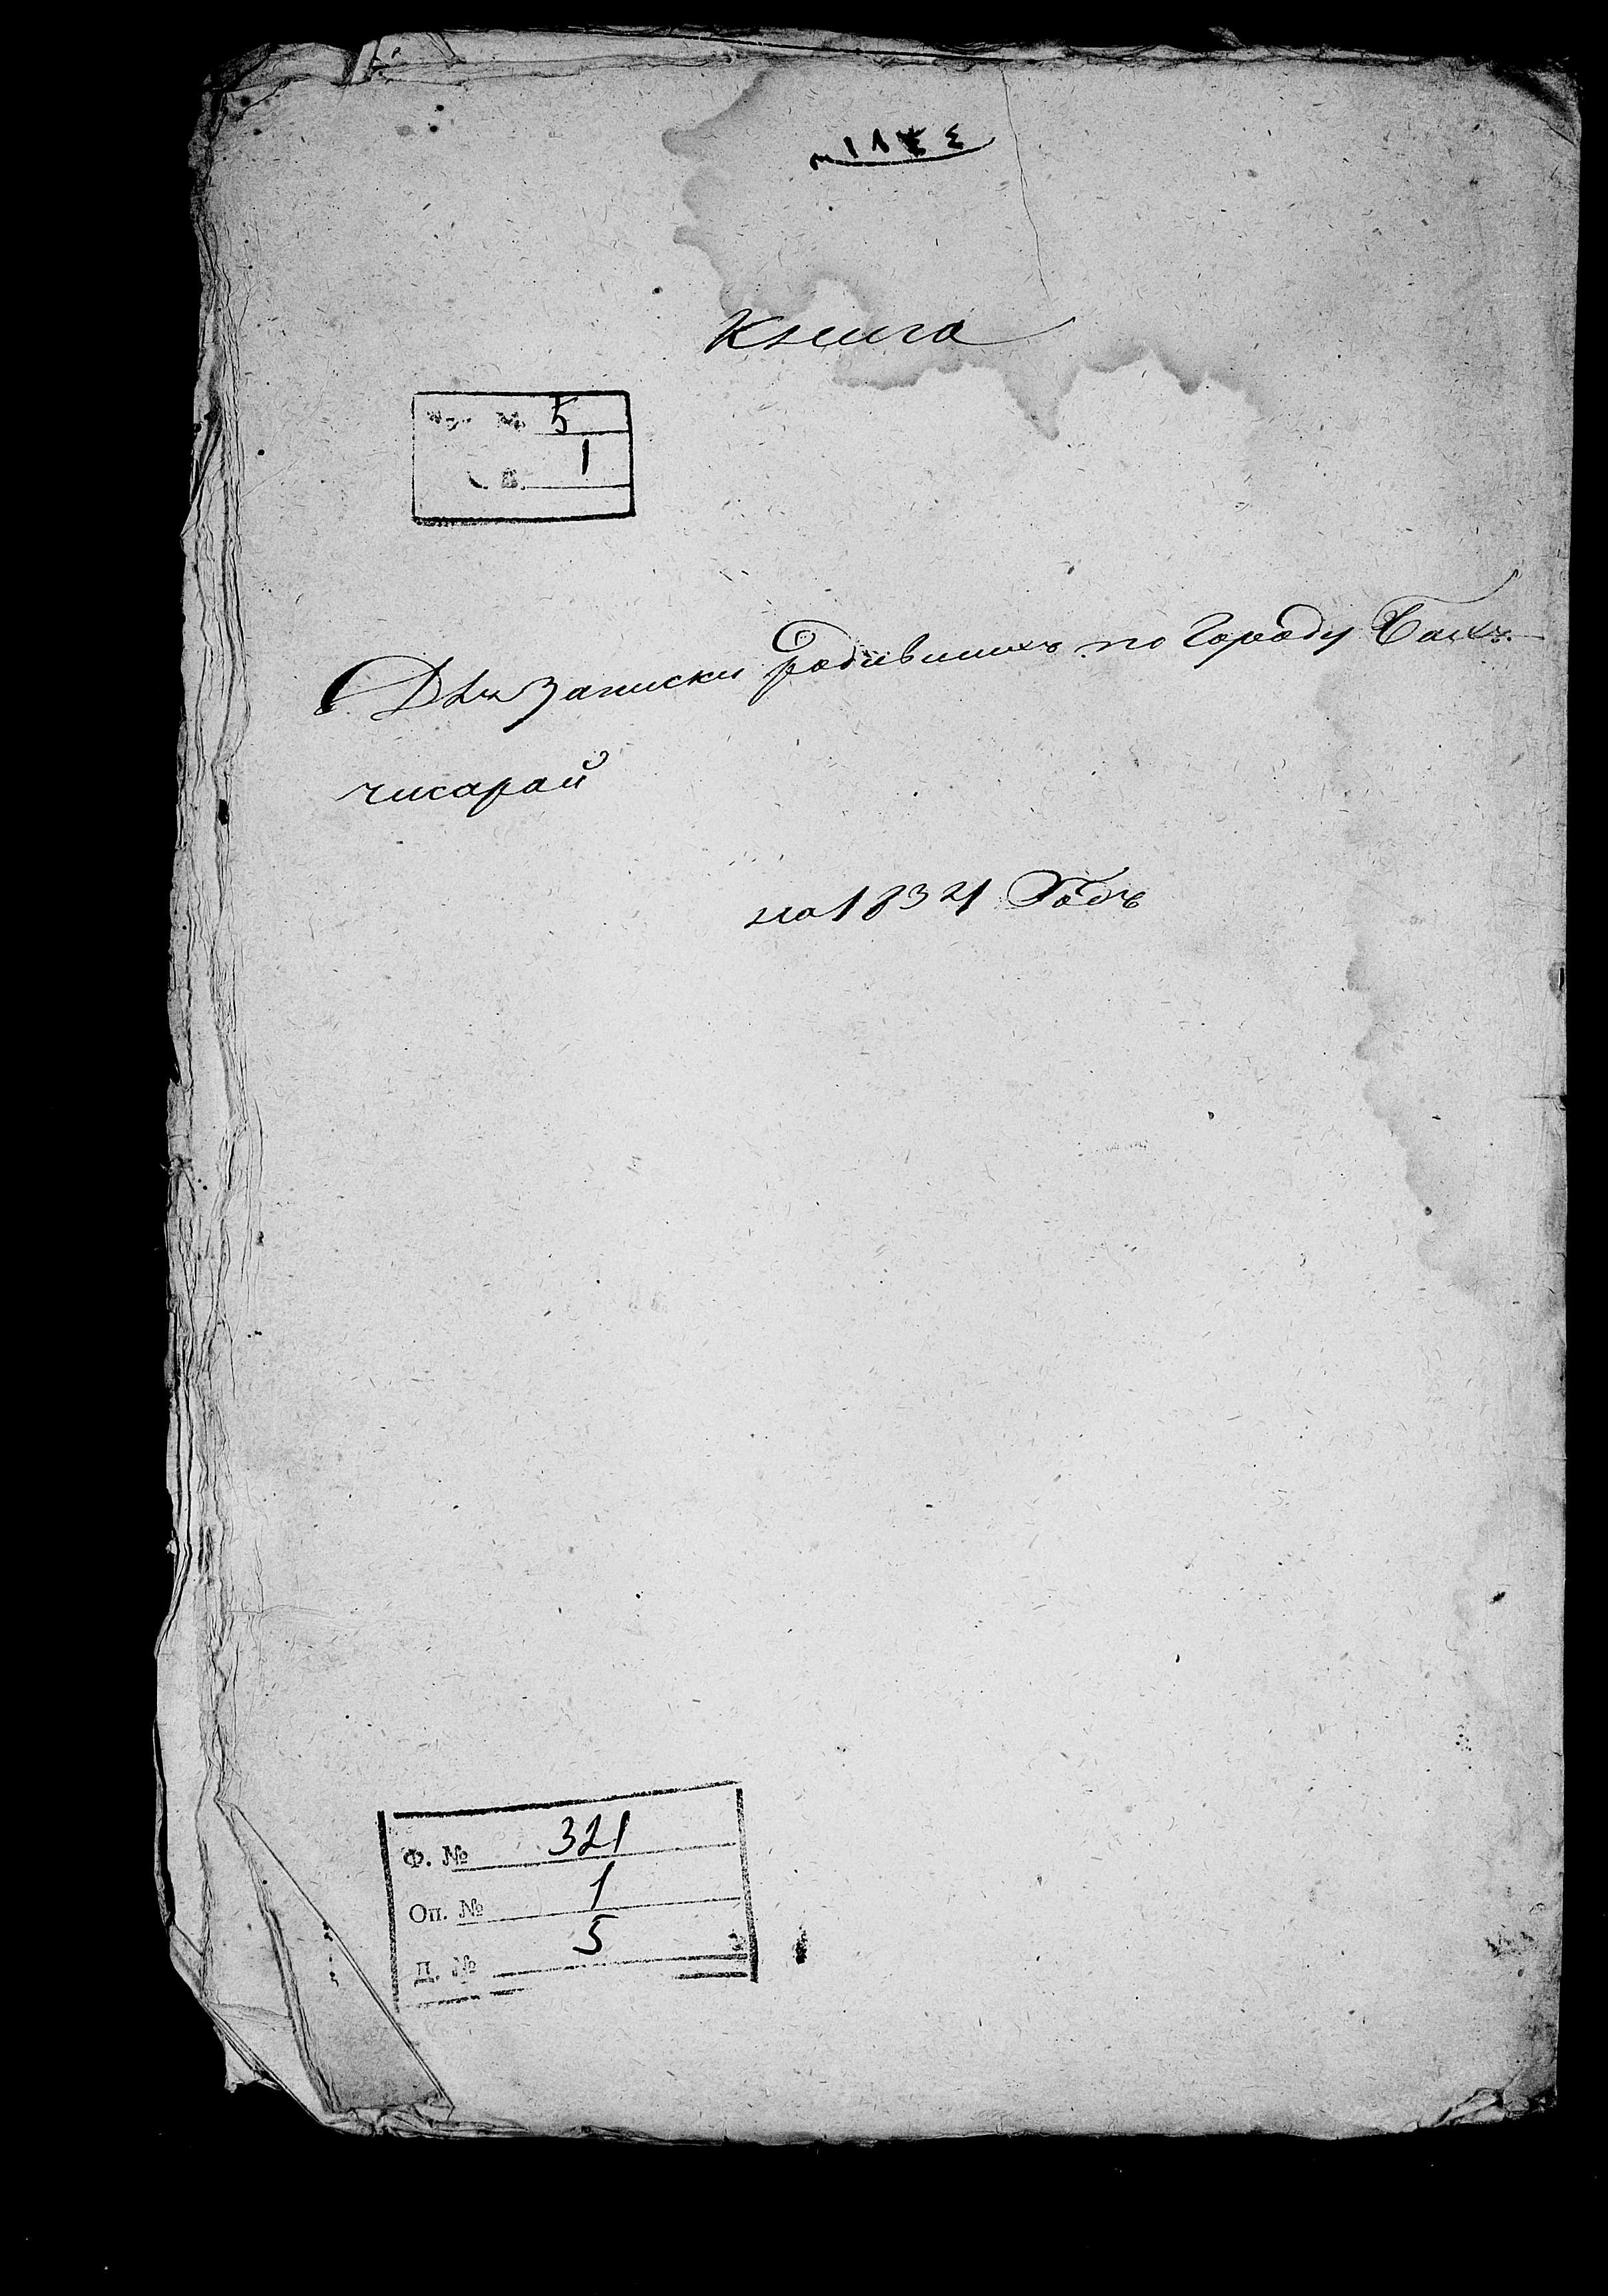 ١٨٣٤
Книга
№ 5
1
Для записки родившихъ по Городу Бахъ-
чисарай
на 1834 Годъ
Ф. № 321
Оп. № 1
Д. № 5